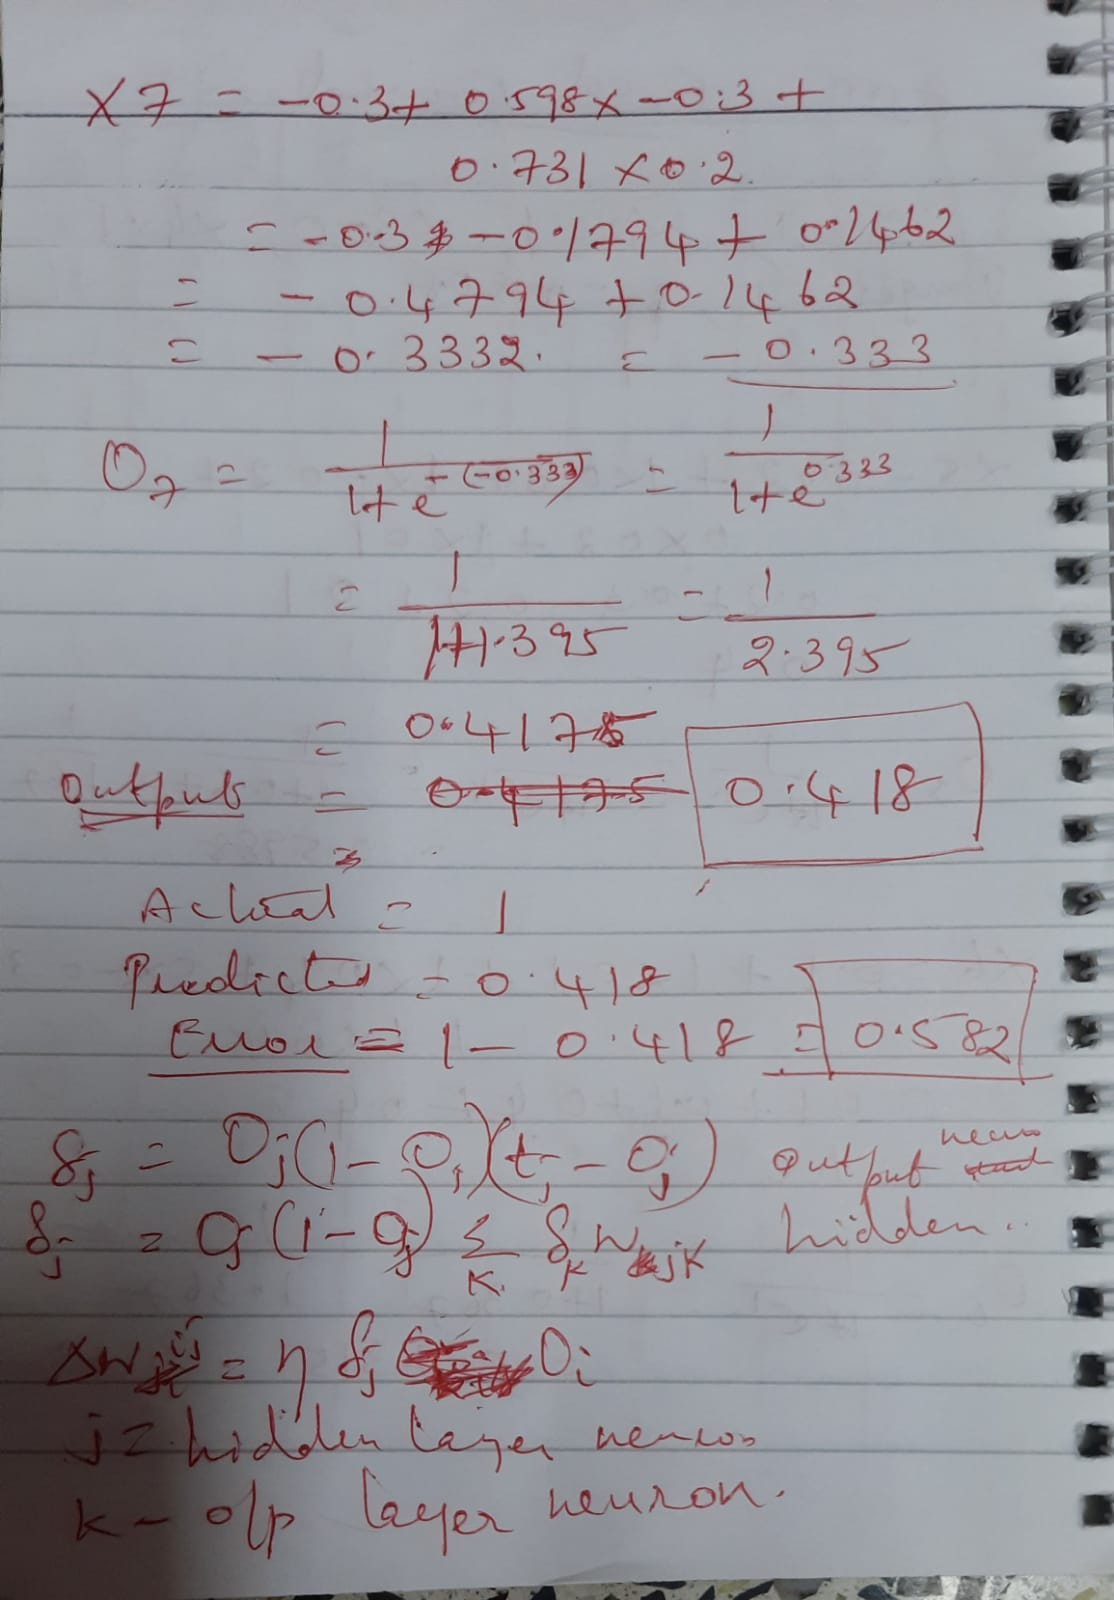 X7 = -0.3+ 0.598x -0.3 +
0.731 x 0.2
= -0.3 -0.1794 + 0.1462
= - 0.4794 + 0.1462
= - 0.3332. = - 0.333
O7 = 1/(1+e^-(-0.333)) = 1/(1+e^0.333)
= 1/(1+1.395) = 1/2.395
= 0.4175
Output = 0.4175 0.418
=
Actual = 1
Predicted = 0.418
Error = 1 - 0.418 = 0.582
δj = Oj(1-Oj)(tj - Oj) output neuro
δj = Oj(1-Oj) Σk δk wjk hidden..
Δwij = η δj Oi
j = hidden layer neuron
k - o/p layer neuron.